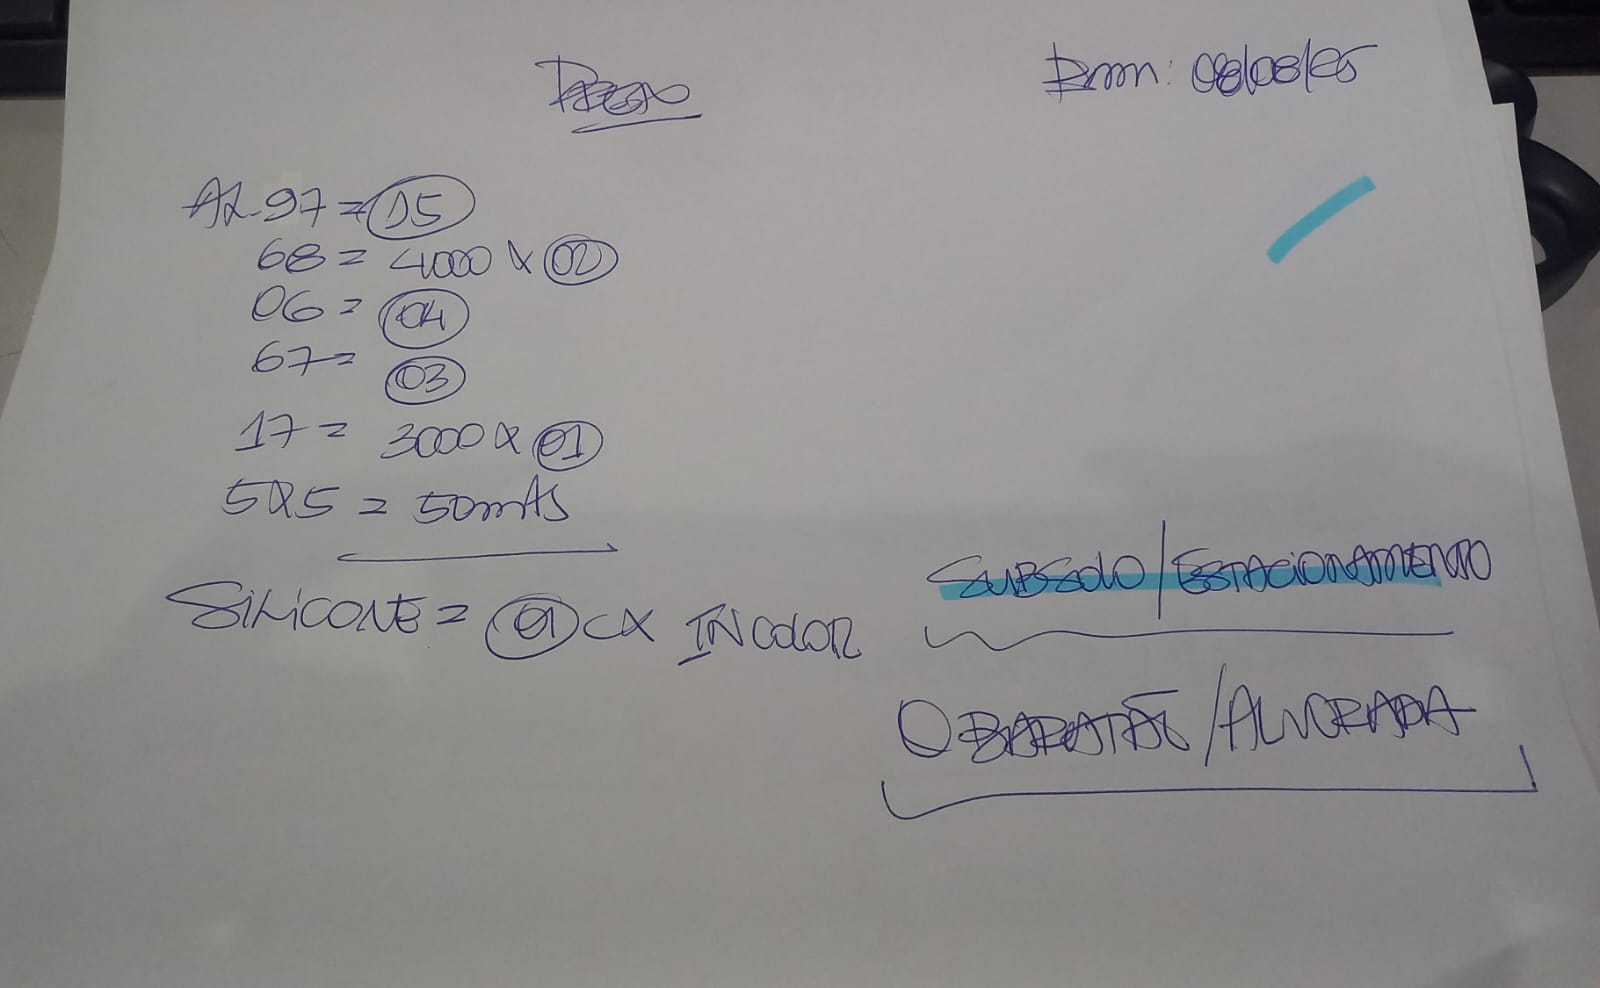 Bmn: 08/08/25
AL-97 = 15
68 = 4000 x 02
06 = 04
67 = 03
17 = 3000 x 01
5x5 = 50mts
SILICONE = 01 CX INCOLOR
SUBSOLO/ESTACIONAMENTO
O BARATÃO/ALVORADA